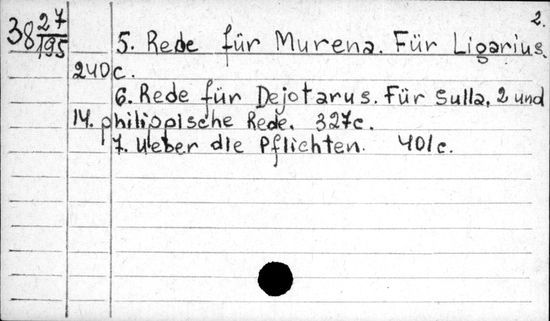 2.
38 27/195 5. Rede für Murena. Für Ligarius.
240 c.
6. Rede für Dejotarus. Für Sulla, 2 und
14. philippische Rede. 327c.
7. Ueber die Pflichten. 401c.